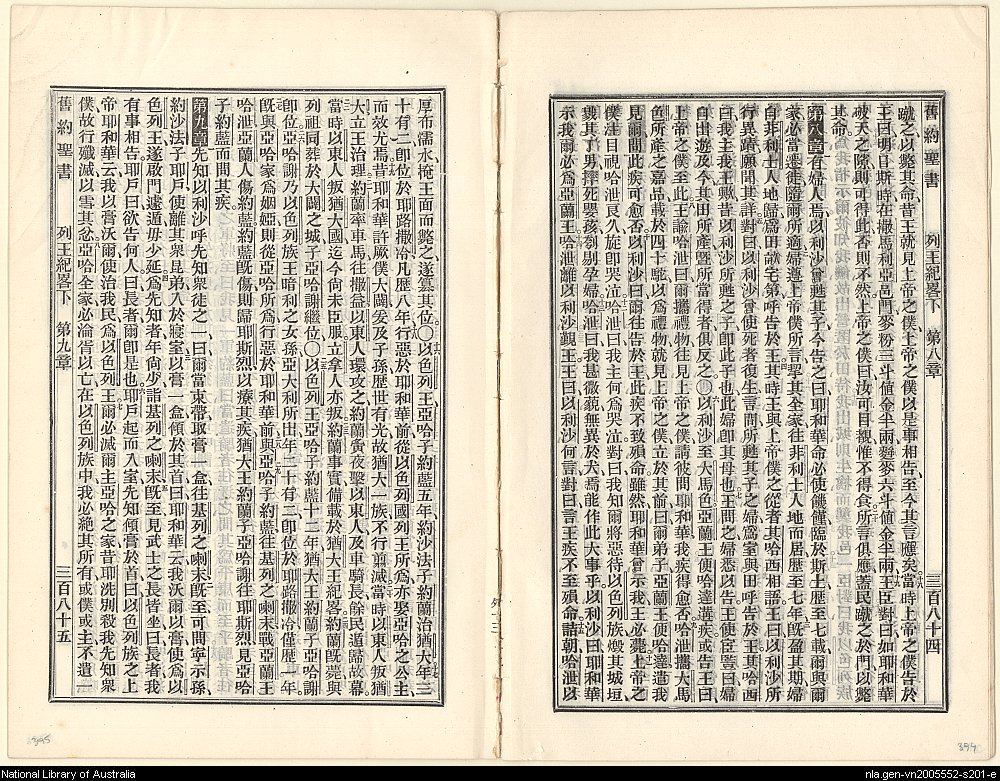 舊約聖書 列王紀畧下 第八章 三百八十四
蹴之以斃其命昔王就見上帝之僕上帝之僕以是事相告至今其言應矣當時上帝之僕告於
王曰明日斯時在撒馬利亞邑門麥粉三斗値金半兩麰麥六斗値金半兩王臣對曰如耶和華
破天之隙則可得此否則不然上帝之僕曰汝可目覩惟不得食所言俱應蓋民蹴之於門以斃
其命
第八章有婦人焉以利沙曾甦其子今告之曰耶和華命必使饑饉臨於斯土歷至七載爾與爾
家必當遷徙隨爾所適婦遵上帝僕所言挈其全家往非利士人地而居歷至七年旣盈其期婦
自非利士人地歸爲田疇宅第呼告於王其時王與上帝僕之從者其哈西相語王曰以利沙所
行異蹟願聞其詳對曰以利沙曾使死者復生言間所甦其子之婦爲室與田呼告於王其哈西
曰我主我王歟昔以利沙所甦之子卽此子也此婦卽其母也王問之婦悉以告王使宦豎曰婦
自出遊及今其田所產曁所當得者俱反之〇以利沙至大馬色亞蘭王便哈達遘疾或告王曰
上帝之僕至此王諭哈泄曰爾攜禮物往見上帝之僕請彼問耶和華我疾得愈否哈泄攜大馬
色所產之嘉品載於四十駝以爲禮物就見上帝之僕立於其前曰爾弟子亞蘭王便哈達遣我
見爾問此疾可愈否以利沙曰爾往告於王此疾不致殞命雖然耶和華曾示我王必薨上帝之
僕注目視哈泄良久旋卽哭泣哈泄曰我主何爲哭泣對曰我知爾將惡待以色列族燬其城垣
戮其丁男摔死嬰孩剖剔孕婦哈泄曰我甚微藐無異於犬焉能作此大事乎以利沙曰耶和華
示我爾必爲亞蘭王哈泄離以利沙覲王王曰以利沙何言對曰言王疾不至殞命詰朝哈泄以
厚布濡水掩王面而斃之遂簒其位〇以色列王亞哈子約藍五年約沙法子約蘭治猶大年三
十有二卽位於耶路撒冷凡歷八年行惡於耶和華前從以色列國列王所爲亦娶亞哈之公主
而效尤焉昔耶和華許厥僕大闢爰及子孫歷世有光故猶大一族不行剪滅當時以東人叛猶
大立王治理約蘭率車馬往撒益以東人環攻之約蘭夤夜擊以東人及車騎長餘民遁歸故幕
當時以東人叛猶大國迄今尙未臣服立拿人亦叛約蘭事實備載於猶大王紀畧約蘭旣薨與
列祖同葬於大闢之城子亞哈謝繼位〇以色列王亞哈子約藍十二年猶大王約蘭子亞哈謝
卽位亞哈謝乃以色列族王暗利之女孫亞大利所出年二十有二卽位於耶路撒冷僅歷一年
旣與亞哈家爲姻婭則從亞哈所爲行惡於耶和華前與亞哈子約藍往基列之喇末戰亞蘭王
哈泄亞蘭人傷約藍約藍旣傷則歸耶斯烈以療其疾猶大王約蘭子亞哈謝往耶斯烈見亞哈
子約藍而問其疾
第九章先知以利沙呼先知衆徒之一曰爾當束帶取膏一盒往基列之喇末旣至可問寧示孫
約沙法子耶戶使離其衆昆弟入於寢室以膏一盒傾於其首曰耶和華云我沃爾以膏使爲以
色列王遂啟門遽遁毋少延爲先知者年尙少詣基列之喇末旣至見武士之長皆坐曰長者我
有事相告耶戶曰欲告何人曰長者爾卽是也耶戶起而入室先知傾膏於首曰以色列族之上
帝耶和華云我以膏沃爾使治我民爲以色列王爾必滅爾主亞哈之家昔耶洗別殺我先知衆
僕故行殲滅以雪其忿亞哈全家必淪胥以亡在以色列族中我必絕其所有或僕或主不遺一
舊約聖書 列王紀畧下 第九章 三百八十五
395
394
National Library of Australia
nla.gen-vn2005552-s201-e